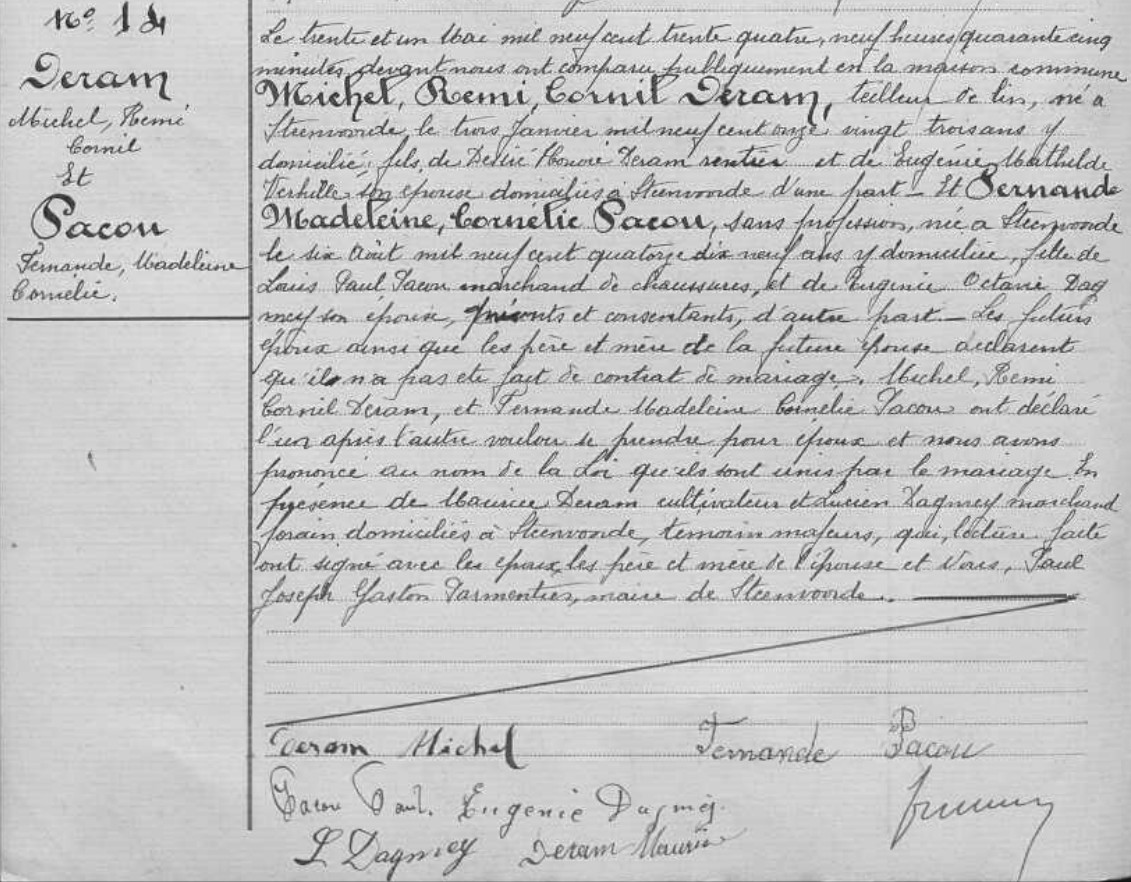 Nº 14
Deram
Michel, Remi
Cornil
Et
Pacou
Fernande, Madeleine
Cornélie.
Le trente et un Mai mil neuf cent trente quatre, neuf heures quarante cinq
minutes, devant nous ont comparu publiquement en la maison commune
Michel, Remi, Cornil Deram, teilleur de lin, né a
Steenvoorde le trois Janvier mil neuf cent onze vingt trois ans y
domicilié, fils de Désiré Honoré Deram rentier et de Eugénie Mathilde
Verhille son épouse domiciliés à Steenvoorde d'une part - Et Fernande
Madeleine, Cornelie Pacou, sans profession, née a Steenvoorde
le six Août mil neuf cent quatorze dix neuf ans y domiciliée, fille de
Louis Paul Pacou marchand de chaussures, et de Eugenie Octavie Dag
mey son épouse, présents et consentants, d'autre part. - Les futurs
époux ainsi que les père et mère de la future épouse declarent
qu'il n'a pas été fait de contrat de mariage. Michel, Remi
Cornil Deram, et Fernande Madeleine Cornélie Pacou ont déclaré
l'un après l'autre vouloir se prendre pour époux et nous avons
prononcé au nom de la Loi qu'ils sont unis par le mariage. En
présence de Maurice Deram cultivateur et Lucien Dagmey marchand
forain domiciliés à Steenvoorde, temoin majeurs, qui, lecture faite
ont signé avec les epoux, les père et mère de l'épouse et Nous, Paul
Joseph Gaston Parmentier, maire de Steenvoorde.
Deram Michel Fernande Pacou
Pacou Paul. Eugénie Dagmey.
L Dagmey Deram Maurice